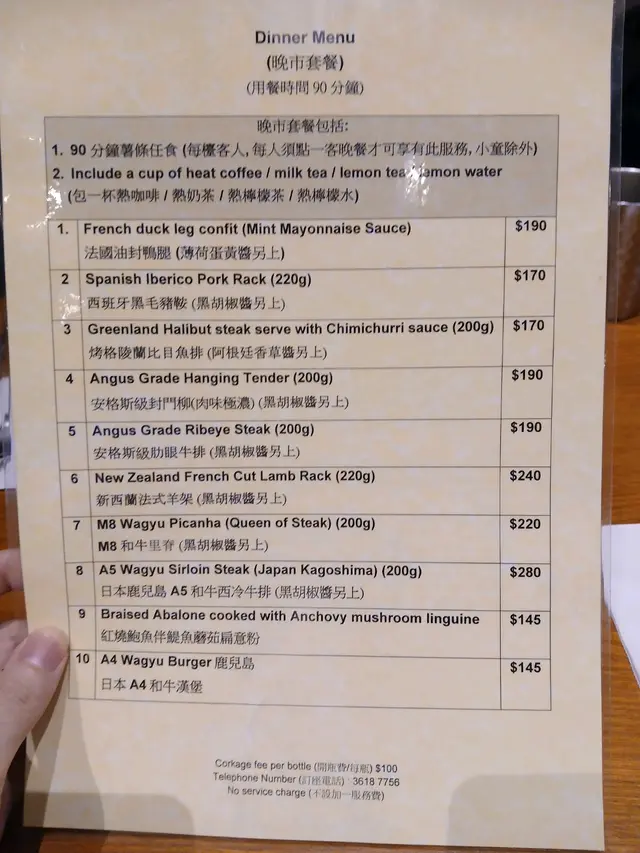 Dinner Menu
(晚市套餐)
(用餐時間 90 分鐘)
晚市套餐包括:
1. 90 分鐘薯條任食 (每檯客人, 每人須點一客晚餐才可享有此服務, 小童除外)
2. Include a cup of heat coffee / milk tea / lemon tea/ lemon water
(包一杯熱咖啡 / 熱奶茶 / 熱檸檬茶 / 熱檸檬水)
1. French duck leg confit (Mint Mayonnaise Sauce) $190
法國油封鴨腿 (薄荷蛋黃醬另上)
2 Spanish Iberico Pork Rack (220g) $170
西班牙黑毛豬鞍 (黑胡椒醬另上)
3 Greenland Halibut steak serve with Chimichurri sauce (200g) $170
烤格陵蘭比目魚排 (阿根廷香草醬另上)
4 Angus Grade Hanging Tender (200g) $190
安格斯級封門柳(肉味極濃) (黑胡椒醬另上)
5 Angus Grade Ribeye Steak (200g) $190
安格斯級肋眼牛排 (黑胡椒醬另上)
6 New Zealand French Cut Lamb Rack (220g) $240
新西蘭法式羊架 (黑胡椒醬另上)
7 M8 Wagyu Picanha (Queen of Steak) (200g) $220
M8 和牛里脊 (黑胡椒醬另上)
8 A5 Wagyu Sirloin Steak (Japan Kagoshima) (200g) $280
日本鹿兒島 A5 和牛西冷牛排 (黑胡椒醬另上)
9 Braised Abalone cooked with Anchovy mushroom linguine $145
紅燒鮑魚伴鯷魚蘑菇扁意粉
10 A4 Wagyu Burger 鹿兒島 $145
日本 A4 和牛漢堡
Corkage fee per bottle (開瓶費/每瓶) $100
Telephone Number (訂座電話) : 3618 7756
No service charge (不設加一服務費)